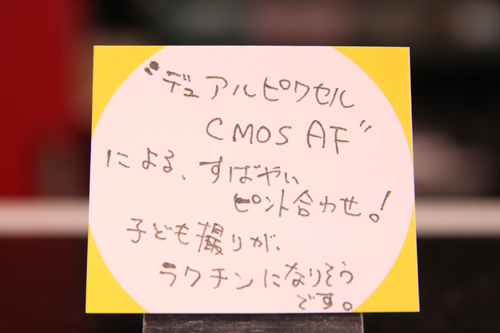 “デュアルピクセル
CMOS AF”
による、すばやい
ピント合わせ。!
子ども撮りが、
ラクチンになりそう
です。